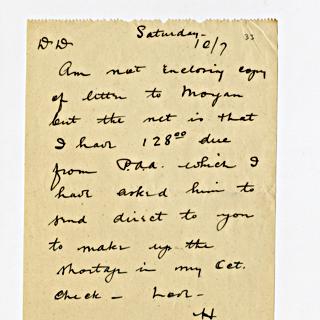 Saturday -
10/7
33
D D
Am not Enclosing copy
of letter to Moyan
but the net is that
I have 128⁰⁰ due
from P.a.a. which I
have asked him to
send direct to you
to make up the
shortage in my Oct.
Check - Love -
H